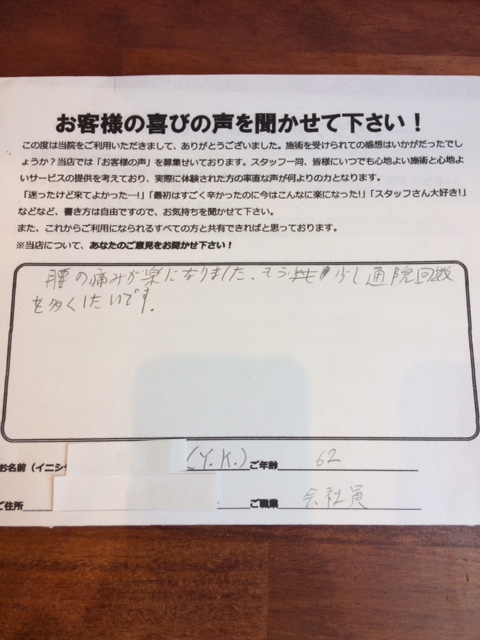 お客様の喜びの声を聞かせて下さい！
この度は当院をご利用いただきまして、ありがとうございました。施術を受けられての感想はいかがだったでし
ょうか？当店では「お客様の声」を募集せいております。スタッフ一同、皆様にいつでも心地よい施術と心地よ
いサービスの提供を考えており、実際に体験された方の率直な声が何よりの力となります。
「迷ったけど来てよかったー!」「最初はすごく辛かったのに今はこんなに楽になった!」「スタッフさん大好き!」
などなど、書き方は自由ですので、お気持ちを聞かせて下さい。
また、これからご利用になられるすべての方と共有できればと思っております。
※当店について、あなたのご意見をお聞かせ下さい！
腰の痛みが楽になりました。もう少し通院回数
を多くしたいです。
お名前（イニシ (Y.K.) ご年齢 62
ご住所 ご職業 会社員